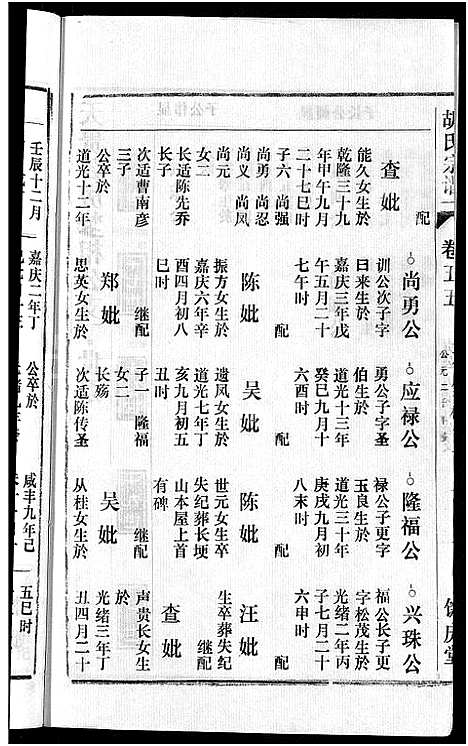 胡氏宗谱
卷五五
配
查妣
能久女生於
乾隆三十九
年甲午九月
二十七巳时
子六 尚强
尚勇 尚忍
尚义 尚凤
尚元
女二
长适陈先乔
长子
次适曹南彦
三子
公卒於
道光十二年
壬辰十二月
尚勇公
训公次子字
曰来生於
嘉庆三年戊
午五月二十
七午时
配
陈妣
振方女生於
嘉庆六年辛
酉四月初八
巳时
继配
郑妣
思英女生於
嘉庆二年丁
应禄公
勇公子字圣
伯生於
道光十三年
癸巳九月十
六酉时
配
吴妣
遗凤女生於
道光七年丁
亥九月初五
丑时
子一 隆福
女二
长殇
次适陈传圣
公卒於
隆福公
禄公子更字
玉良生於
道光三十年
庚戌九月初
八未时
配
陈妣
世元女生卒
失纪葬长埂
山本屋上首
有碑
继配
吴妣
从桂女生於
咸丰九年己
兴珠公
福公长子更
字松茂生於
光绪二年丙
子七月二十
六申时
配
汪妣
生卒葬失纪
继配
查妣
声贵长女生
於
光绪三年丁
丑四月二十
五巳时